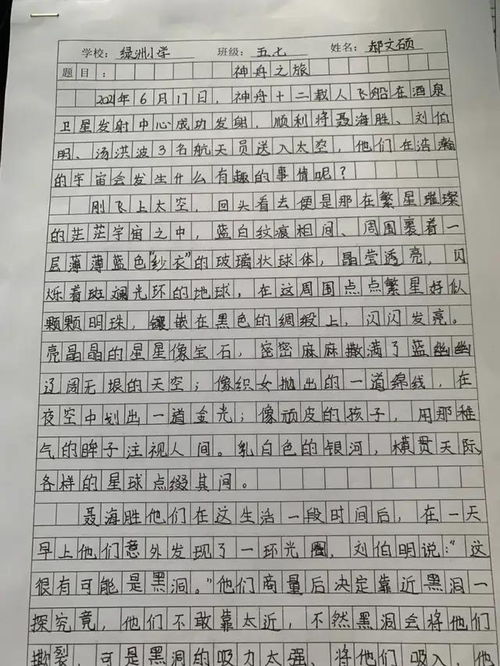 学校：绿洲小学 班级：五、七 姓名：郝文硕
题目： 神舟之旅
2021年6月17日，神舟十二载人飞船在酒泉
卫星发射中心成功发射，顺利将聂海胜、刘伯
明、汤洪波3名航天员送入太空，他们在浩瀚
的宇宙会发生什么有趣的事情呢？
刚飞上太空，回头看去便是那在繁星璀璨
的茫茫宇宙之中，蓝白纹痕相间、周围裹着一
层薄薄蓝色“纱衣”的玻璃状球体，晶莹透亮，闪
烁着斑斓光环的地球，在这周围点点繁星好似
颗颗明珠，镶嵌在黑色的绸缎上，闪闪发亮。
亮晶晶的星星像宝石，密密麻麻撒满了蓝幽幽
辽阔无垠的天空；像织女抛出的一道绵线，在
夜空中划出一道金光；像顽皮的孩子，用那稚
气的眸子注视人间。乳白色的银河，横贯天际
各样的星球点缀其间。
聂海胜他们在这生活一段时间后，在一天
早上他们意外发现了一环光圈，刘伯明说：“这
很有可能是黑洞。”他们商量后决定靠近黑洞一
探究竟，他们不敢靠太近，不然黑洞会将他们
撕裂，可是黑洞的吸力太强，将他们吸入，他